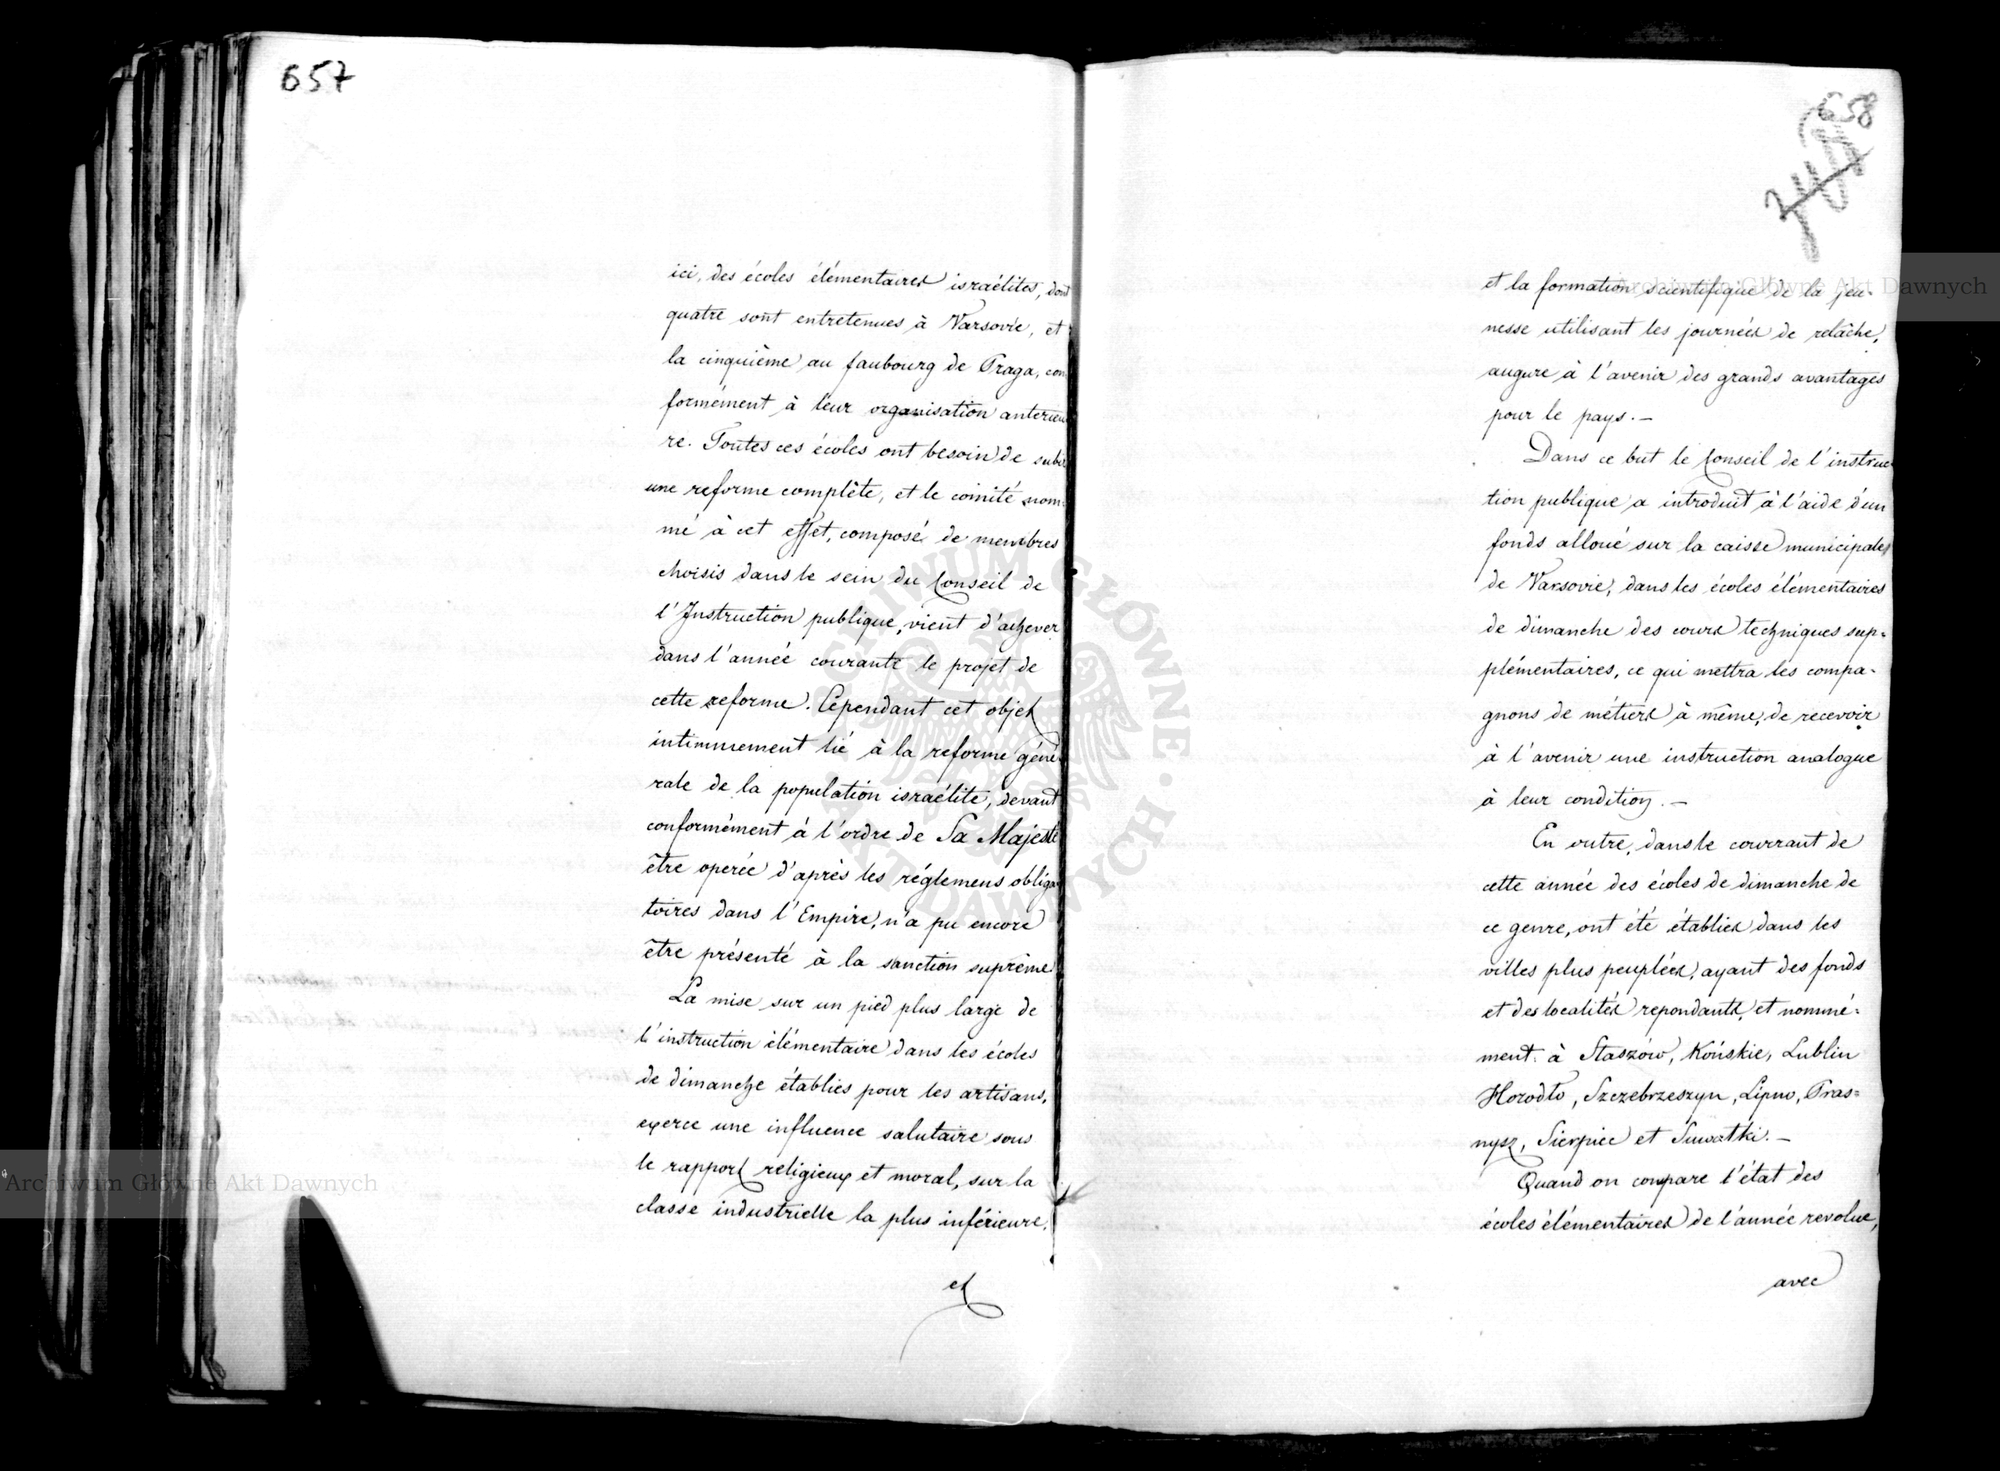 657
ici, des écoles élémentaires israélites, dont
quatre sont entretenues à Varsovie, et
la cinquième au faubourg de Praga, con-
formément à leur organisation anterieu
re. Toutes ces écoles ont besoin de subir
une reforme complête, et le comité nom-
mé à cet effét, composé de membres
choisis dans le sein du Conseil de
l'Instruction publique, vient d'achever
dans l'année courante le projet de
cette reforme. Cépendant cet objet
intimmement lié à la reforme géné
rale de la population israélite, devant
conformément à l'ordre de Sa Majesté
être operée d'après les réglemens obliga
toires dans l'Empire, n'a pu encore
être présenté à la sanction suprème
La mise sur un pied plus large de
l'instruction élémentaire dans les écoles
de dimanche établies pour les artisans,
exerce une influence salutaire sous
le rapport religieux et moral, sur la
classe industrielle la plus inférieure,
et
658
748
et la formation scientifique de la jeu-
nesse utilisant les journées de relâche,
augure à l'avenir des grands avantages
pour le pays. —
Dans ce but le Conseil de l'instruc
tion publique a introduit à l'aide d'un
fonds alloué sur la caisse municipale
de Varsovie, dans les écoles élémentaires
de dimanche des cours techniques sup-
plémentaires, ce qui mettra les compa-
gnons de métiers à même, de recevoir
à l'avenir une instruction analogue
à leur condition. —
En outre, dans le courrant de
cette année des écoles de dimanche de
ce genre, ont été établies dans les
villes plus peuplées, ayant des fonds
et des localités repondants, et nommé-
ment: à Staszów, Końskie, Lublin
Horodło, Szczebrzeszyn, Lipno, Pras-
nysz, Sierpiec et Suwałki. —
Quand on compare l'état des
écoles élémentaires de l'année revolue,
avec
Archiwum Główne Akt Dawnych
Archiwum Główne Akt Dawnych
ARCHIWUM GŁÓWNE · AKT DAWNYCH ·